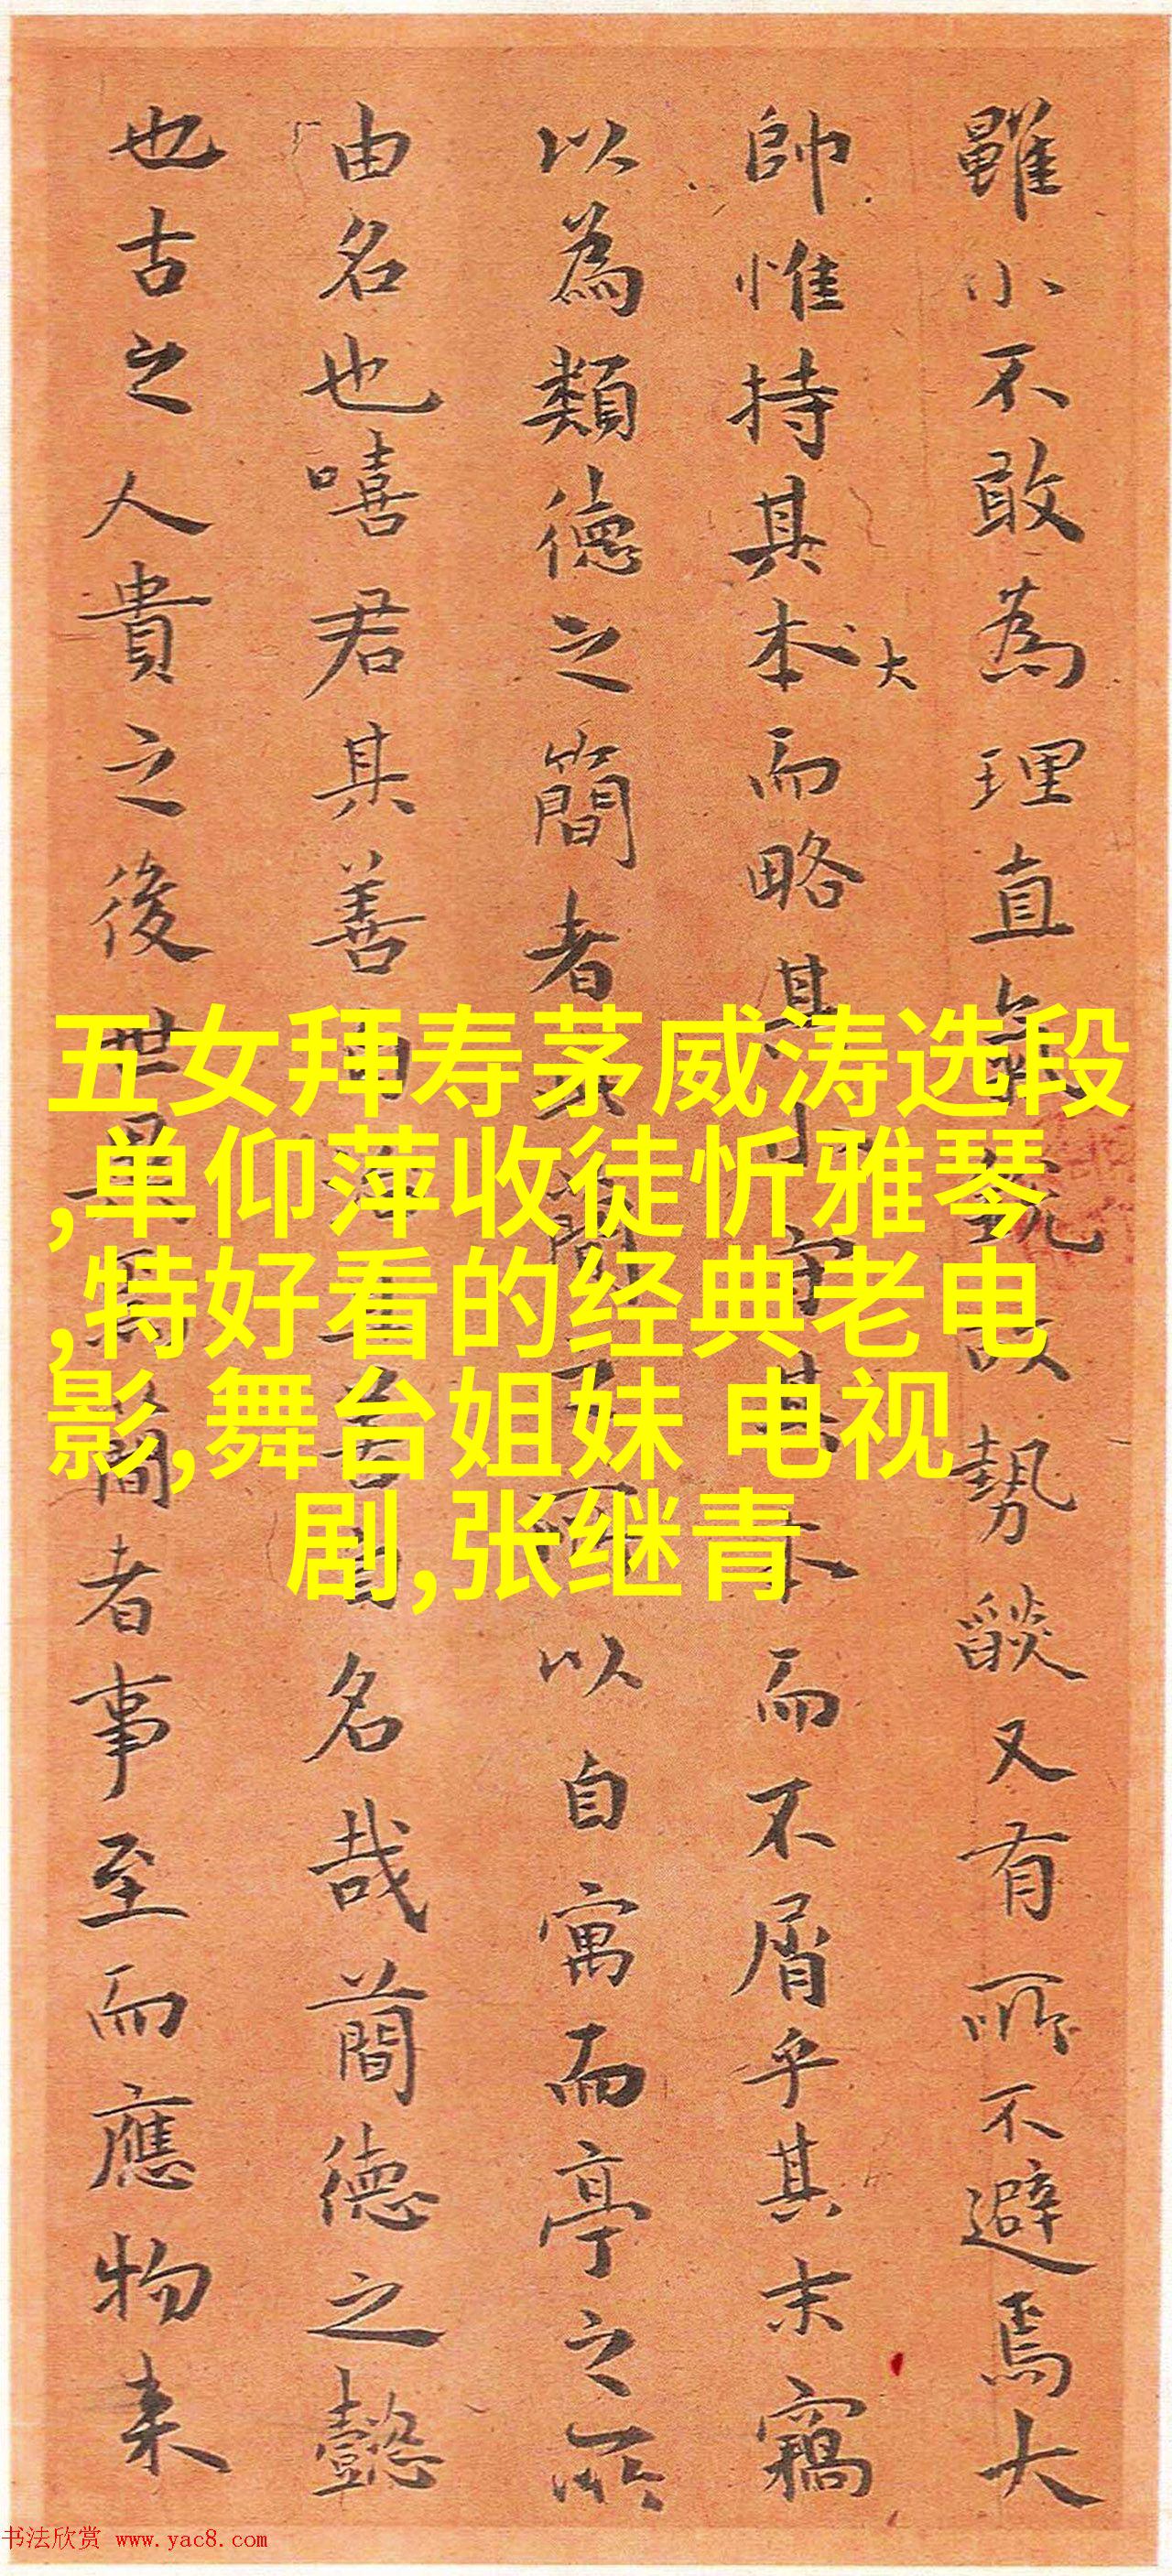 雖小不敢為理直氣勢燄又有所不避焉大
帥惟持其本大而略其守其本而不屑乎其末竊
以為類德之簡者簡以自寓而亭之所
由名也嘻君其善自名哉簡德之懿
也古之人貴之後世簡者事至而應物来
五女拜寿茅威涛选段
,单仰萍收徒忻雅琴
,特好看的经典老电
影,舞台姐妹 电视
剧,张继青
书法欣赏 www.yac8.com